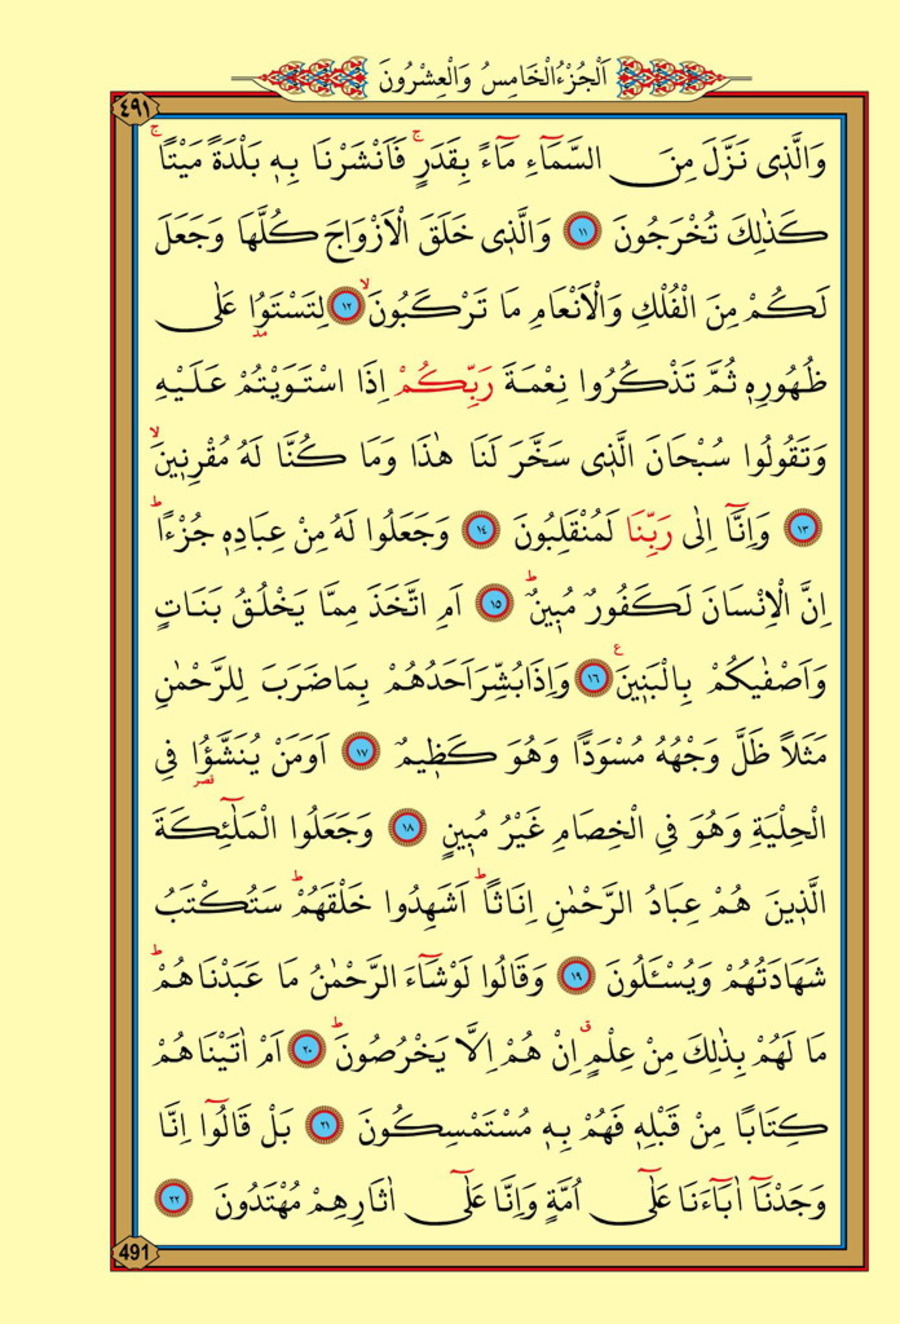 اَلْجُزْءُ الْخَامِسُ وَالْعِشْرُونَ
٤٩١
وَالَّذ۪ى نَزَّلَ مِنَ السَّمَٓاءِ مَٓاءً بِقَدَرٍۚ فَاَنْشَرْنَا بِه۪ بَلْدَةً مَيْتًاۚ
كَذٰلِكَ تُخْرَجُونَ ﴿١١﴾ وَالَّذ۪ى خَلَقَ الْاَزْوَاجَ كُلَّهَا وَجَعَلَ
لَكُمْ مِنَ الْفُلْكِ وَالْاَنْعَامِ مَا تَرْكَبُونَۙ ﴿١٢﴾ لِتَسْتَوُ۫ا عَلٰى
ظُهُورِه۪ ثُمَّ تَذْكُرُوا نِعْمَةَ رَبِّكُمْ اِذَا اسْتَوَيْتُمْ عَلَيْهِ
وَتَقُولُوا سُبْحَانَ الَّذ۪ى سَخَّرَ لَنَا هٰذَا وَمَا كُنَّا لَهُ مُقْرِن۪ينَۙ
﴿١٣﴾ وَاِنَّٓا اِلٰى رَبِّنَا لَمُنْقَلِبُونَ ﴿١٤﴾ وَجَعَلُوا لَهُ مِنْ عِبَادِه۪ جُزْءًاۜ
اِنَّ الْاِنْسَانَ لَكَفُورٌ مُب۪ينٌۜ ﴿١٥﴾ اَمِ اتَّخَذَ مِمَّا يَخْلُقُ بَنَاتٍ
وَاَصْفٰيكُمْ بِالْبَن۪ينَ ﴿١٦﴾ وَاِذَا بُشِّرَ اَحَدُهُمْ بِمَا ضَرَبَ لِلرَّحْمٰنِ
مَثَلًا ظَلَّ وَجْهُهُ مُسْوَدًّا وَهُوَ كَظ۪يمٌ ﴿١٧﴾ اَوَمَنْ يُنَشَّؤُا فِى
الْحِلْيَةِ وَهُوَ فِى الْخِصَامِ غَيْرُ مُب۪ينٍ ﴿١٨﴾ وَجَعَلُوا الْمَلٰٓئِكَةَ
الَّذ۪ينَ هُمْ عِبَادُ الرَّحْمٰنِ اِنَاثًاۜ اَشَهِدُوا خَلْقَهُمْۜ سَتُكْتَبُ
شَهَادَتُهُمْ وَيُسْـَٔلُونَ ﴿١٩﴾ وَقَالُوا لَوْ شَٓاءَ الرَّحْمٰنُ مَا عَبَدْنَاهُمْۜ
مَا لَهُمْ بِذٰلِكَ مِنْ عِلْمٍۗ اِنْ هُمْ اِلَّا يَخْرُصُونَۜ ﴿٢٠﴾ اَمْ اٰتَيْنَاهُمْ
كِتَابًا مِنْ قَبْلِه۪ فَهُمْ بِه۪ مُسْتَمْسِكُونَ ﴿٢١﴾ بَلْ قَالُٓوا اِنَّا
وَجَدْنَٓا اٰبَٓاءَنَا عَلٰٓى اُمَّةٍ وَاِنَّا عَلٰٓى اٰثَارِهِمْ مُهْتَدُونَ ﴿٢٢﴾
491